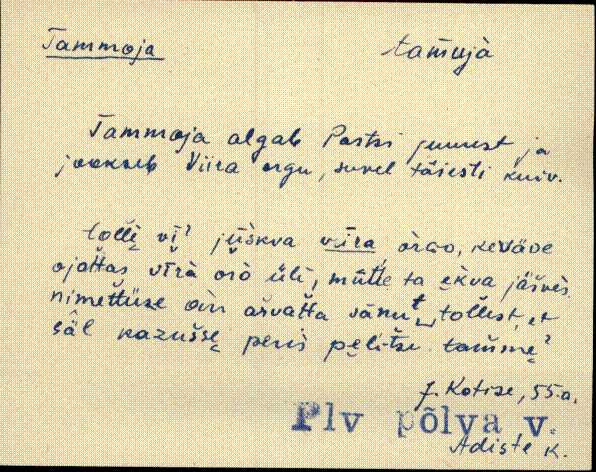 Tammoja tam̄ujà
Tammoja algab Partsi juurest ja
jookseb Viira orgu, suvel täiesti kuiv.
tollè vi̮ì jüškva vīra òrgo, keväde
ojattas vīrà orò üli, müttè ta ekva jäŕvès
nimettüze om ašvatta sānut tollest, et
säl kazušse peris pelitse tam̄me'
J. Kotise, 55 a.
Plv põlva v.
Adiste k.